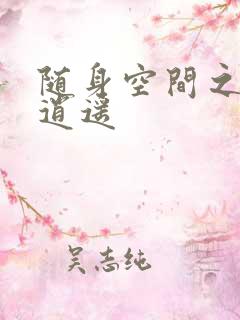 随身空間之
逍遥
吴志纯